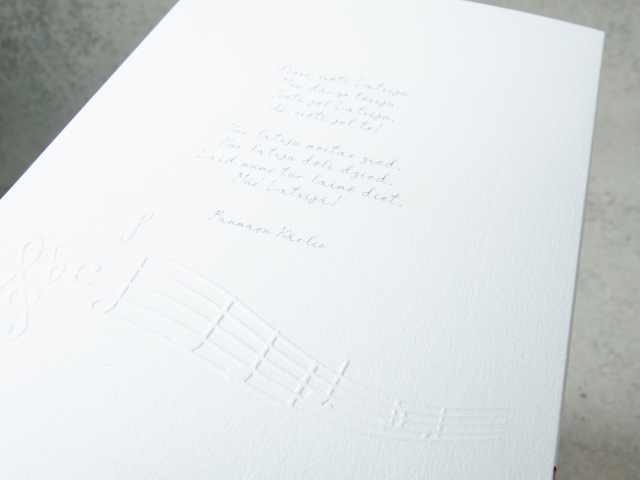 Dievs, svētī Latviju,
Mūs' dārgo tēviju,
Svētī jel Latviju,
Ak, svētī jel to!
Kur latvju meitas zied,
Kur latvju dēli dzied,
Laid mums tur laimē diet,
Mūs' Latvijā!
Baumaņu Kārlis
f